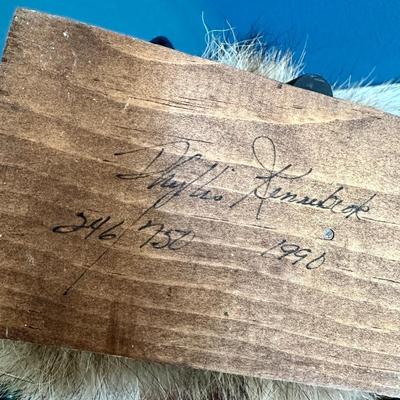 Phyllis Kinnebrok
246/750 1990